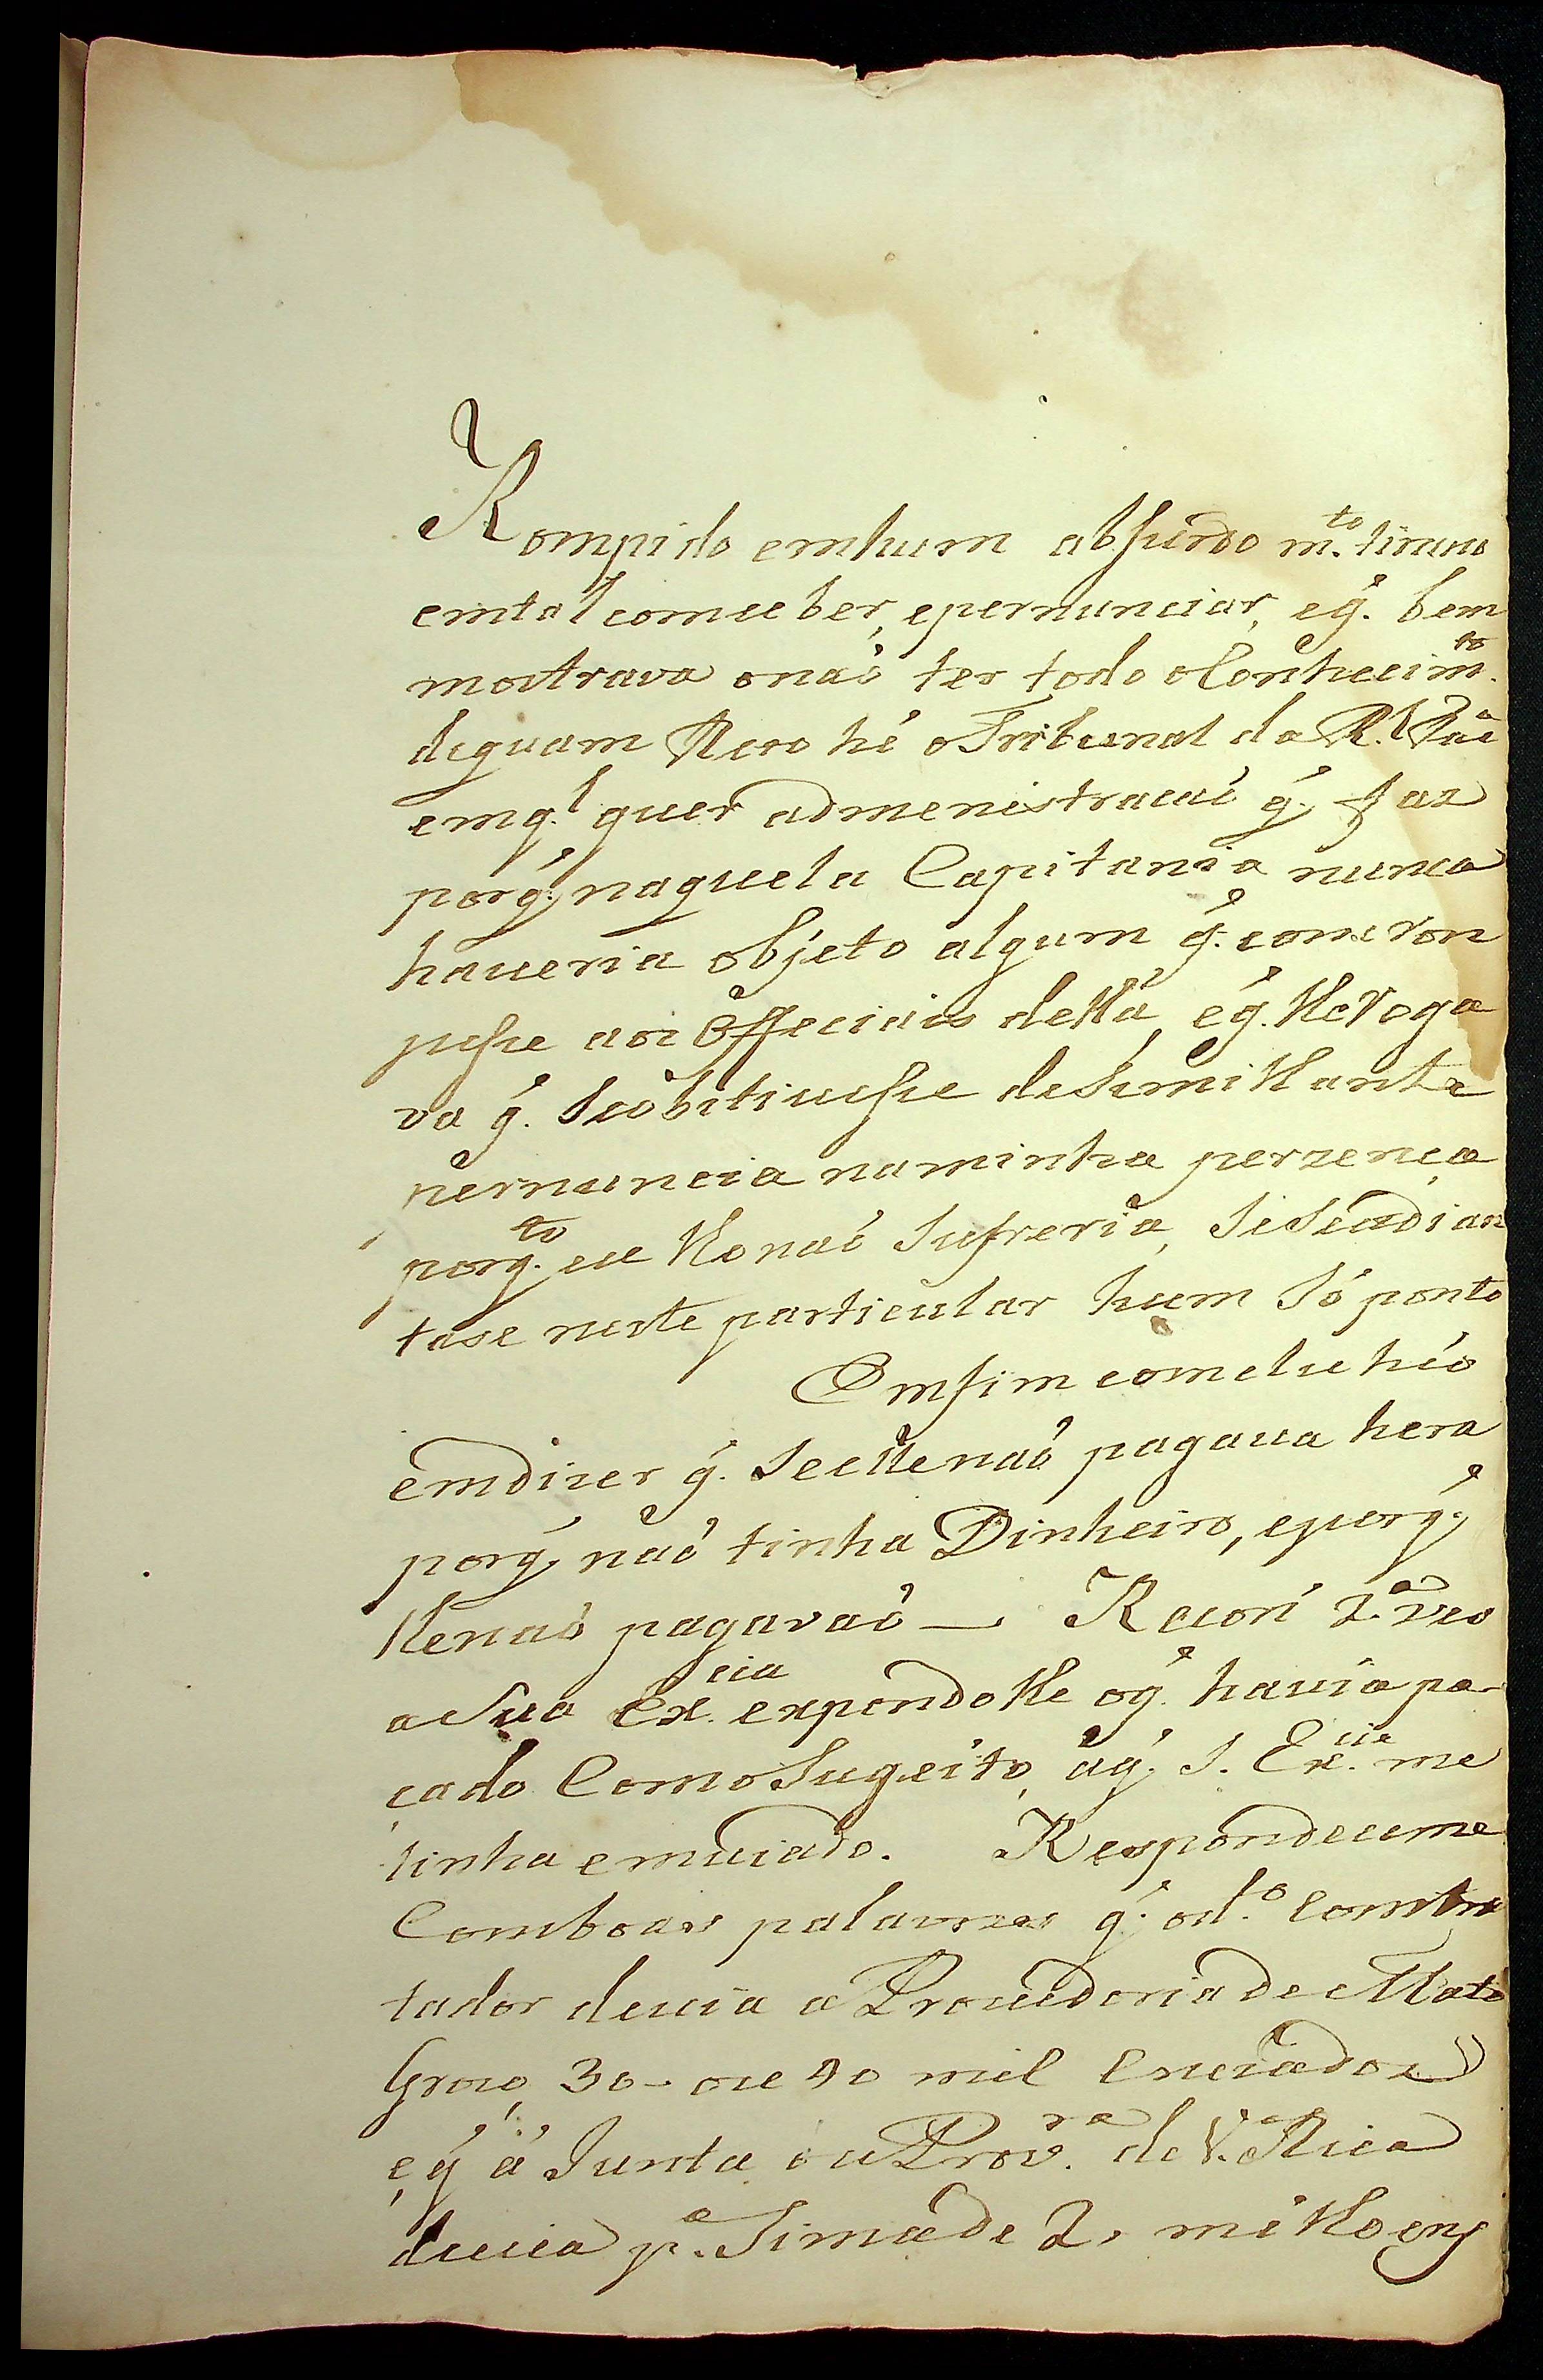 Rompido emhum absurdo m.to timido
emtal comceber, epernunciar, eq̃. bem
mostrava onaõ ter todo oConhecim.to
dequam Recto hé oTribunal da R.l Faz.a
emq.l quer admenistracaõ q̃. faz
porq̃. naquela Capitania nunca
haueria objeto algum q̃. conrron
pesse aos Offeciais della, eq̃. lleroga
va q̃. Subistiuesse desimilhante
pernuncia naminha perzença
porq.to eu lhonaõ Sufreria, Seseadian
tase neste particular hum Só ponto
Emfim comcluhio
emdizer q̃. Seellenaõ pagaua hera
porq̃. naõ tinha Dinheiro, eporq̃.
llenaõ pagavaõ — Recorri 2.a ves
aSua Ex.cia expondolle oq̃. hauia pa-
çado ComoSugeito, aq̃. S. Ex.cia me
tinha emuiado. Respondeume
Comboas palauras q̃. od.o Contra
tador deuia aProuedoria de Mato
Groço 30 - ou 40 mil Cruzados
e q̃ á Junta ou Prov.ra de V.a Rica
deuia p.a Sima de 2, milhoens